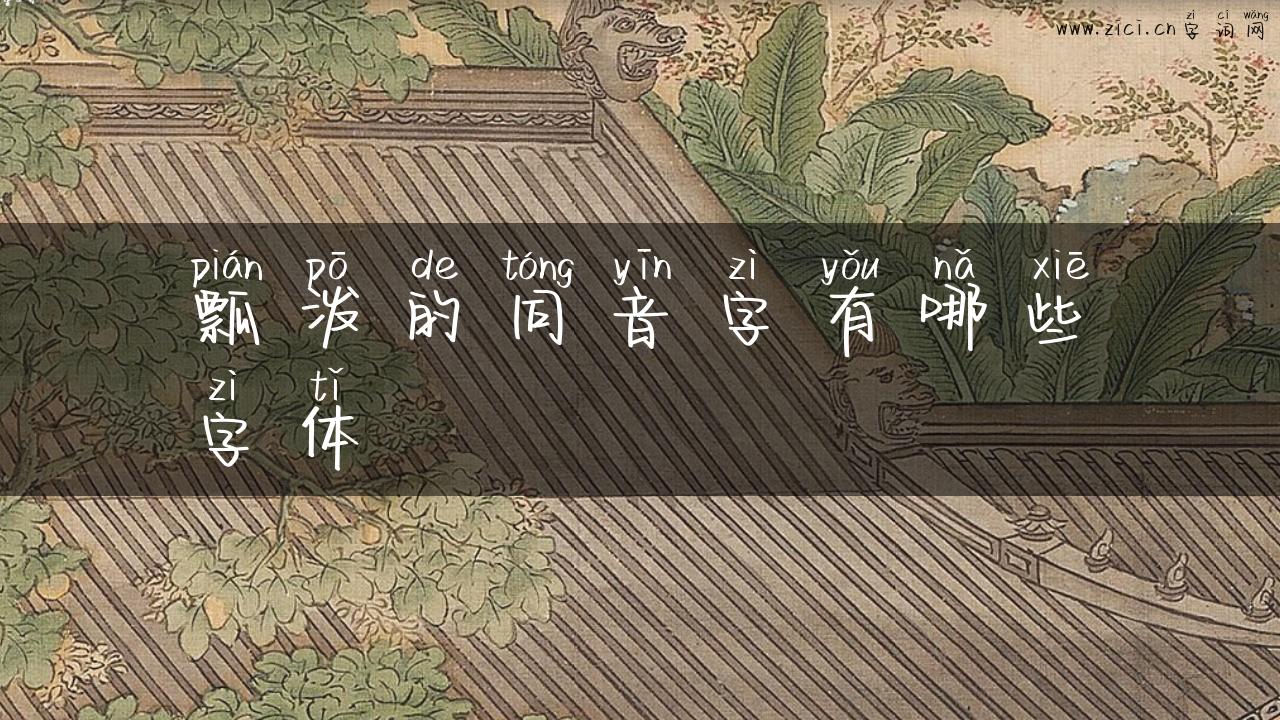 zì cí wǎng
www.zici.cn 字词网
pián pō de tóng yīn zì yǒu nǎ xiē
瓢泼的同音字有哪些
zì tǐ
字体